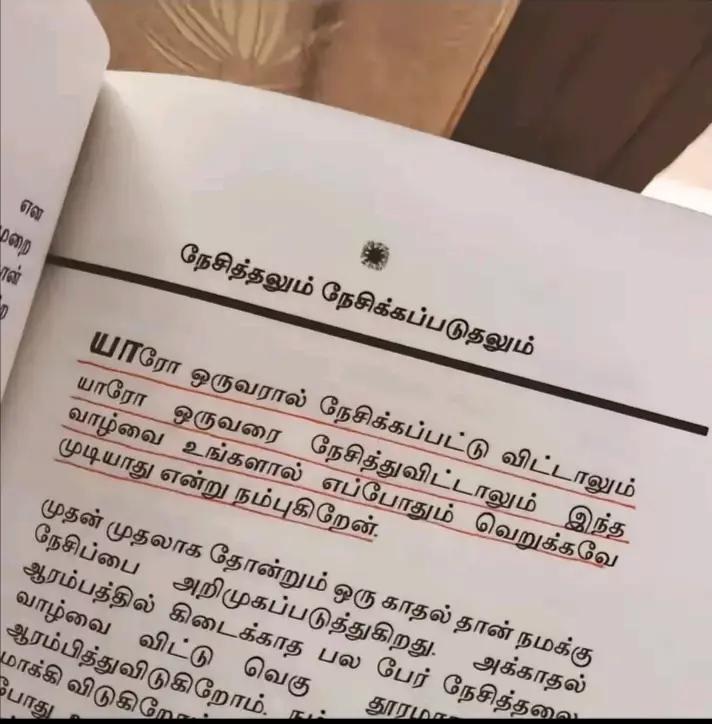 என
நேசித்தலும் நேசிக்கப்படுதலும்
யாரோ ஒருவரால் நேசிக்கப்பட்டு விட்டாலும்
யாரோ ஒருவரை நேசித்துவிட்டாலும் இந்த
வாழ்வை உங்களால் எப்போதும் வெறுக்கவே
முடியாது என்று நம்புகிறேன்.
முதன் முதலாக தோன்றும் ஒரு காதல் தான் நமக்கு
நேசிப்பை அறிமுகப்படுத்துகிறது. அக்காதல்
ஆரம்பத்தில் கிடைக்காத பல பேர் நேசித்தலை
வாழ்வை விட்டு வெகு
ஆரம்பித்துவிடுகிறோம்.